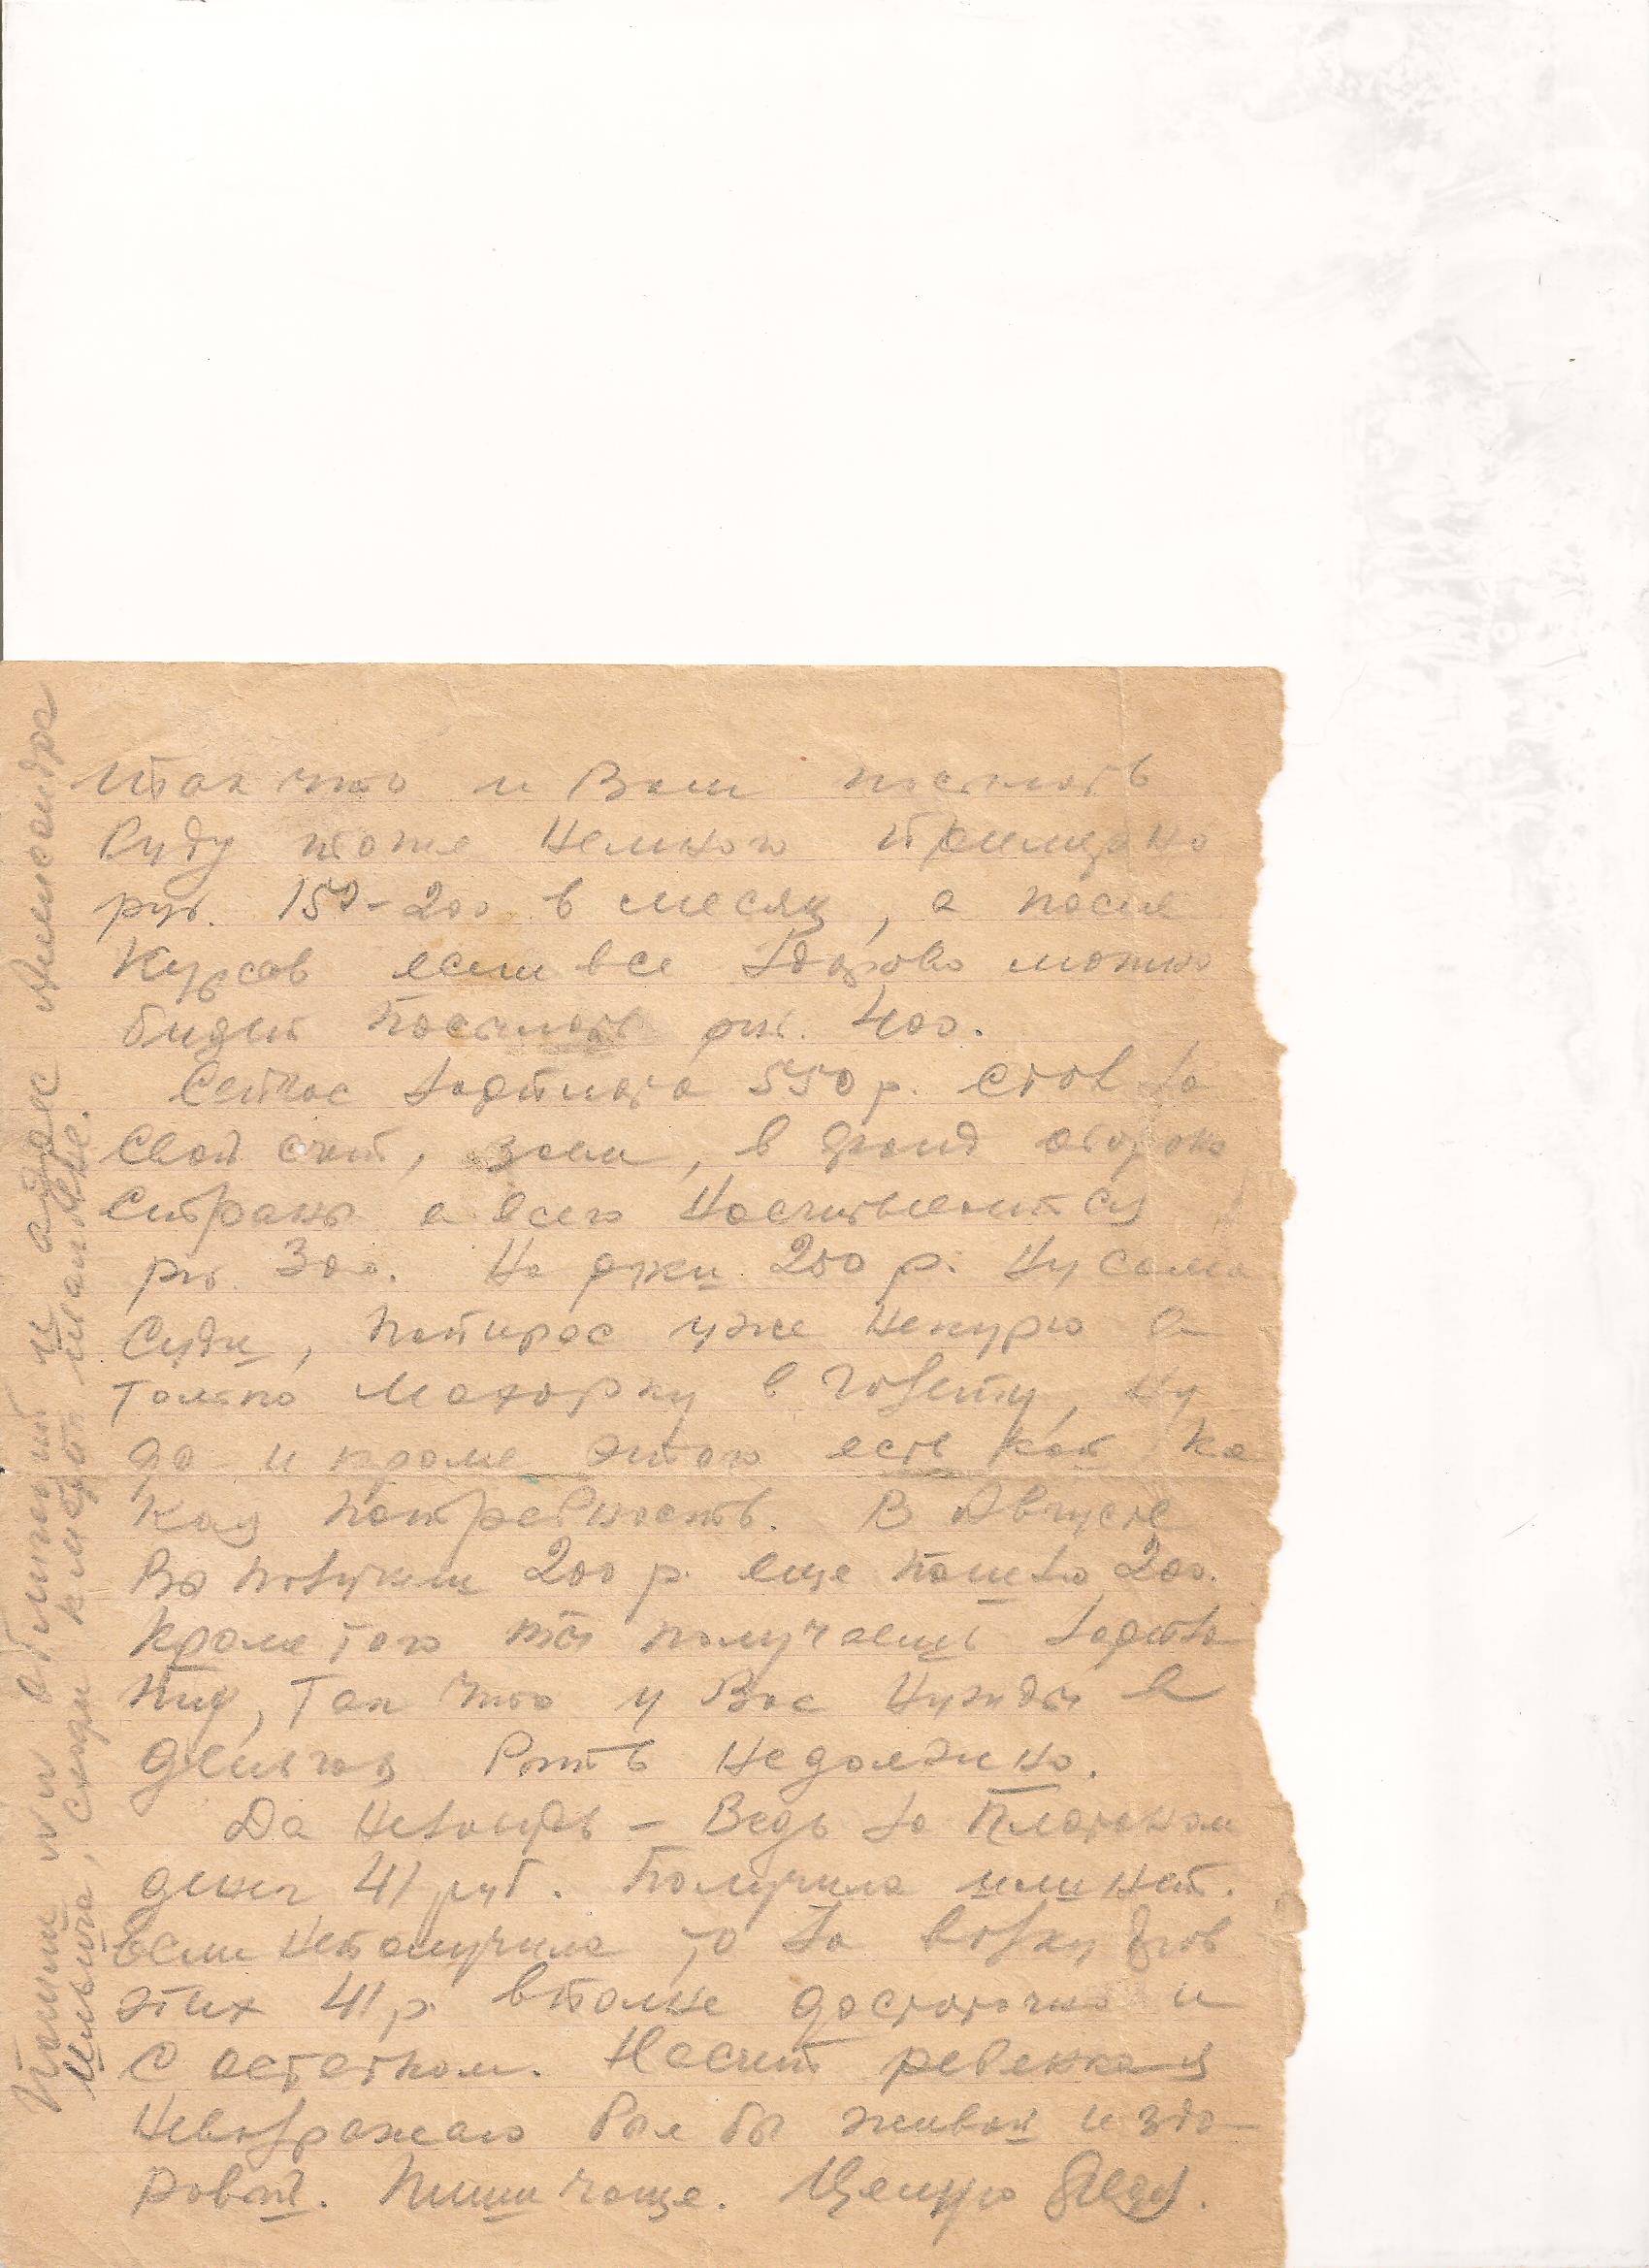 так что и Вам посылать
Буду тоже немного примерно
руб. 150-200 в месяц, а после
Курсов если все здорово можно
будит посылать руб. 400.
Сейчас зарплата 550 р. стол за
Свой счет, заем, в фонд обороны
Страны а всего
руб. 300. На руки 200 р. Ну сама
Суди, папирос уже некурю а
только махорку в газету, ну
да и кроме этого есть кой ка
кая потребность. В Августе
Вы получили 200 р. еще вышлю 200.
Кроме того ты получаешь зарпла
ту, так что у Вас нужды в
деньгах быть недолжно.
Да незабудь – Ведь за
денег 41 руб. Получила или нет.
Если неполучила то за возку дров
этих 41 р. вполне достаточно и
с остатком. Насчет ребенка я
невозражаю был бы живой и здо-
ровый. Пиши чаще. Целую
Пошли мне и адрес Александра
Ильича,